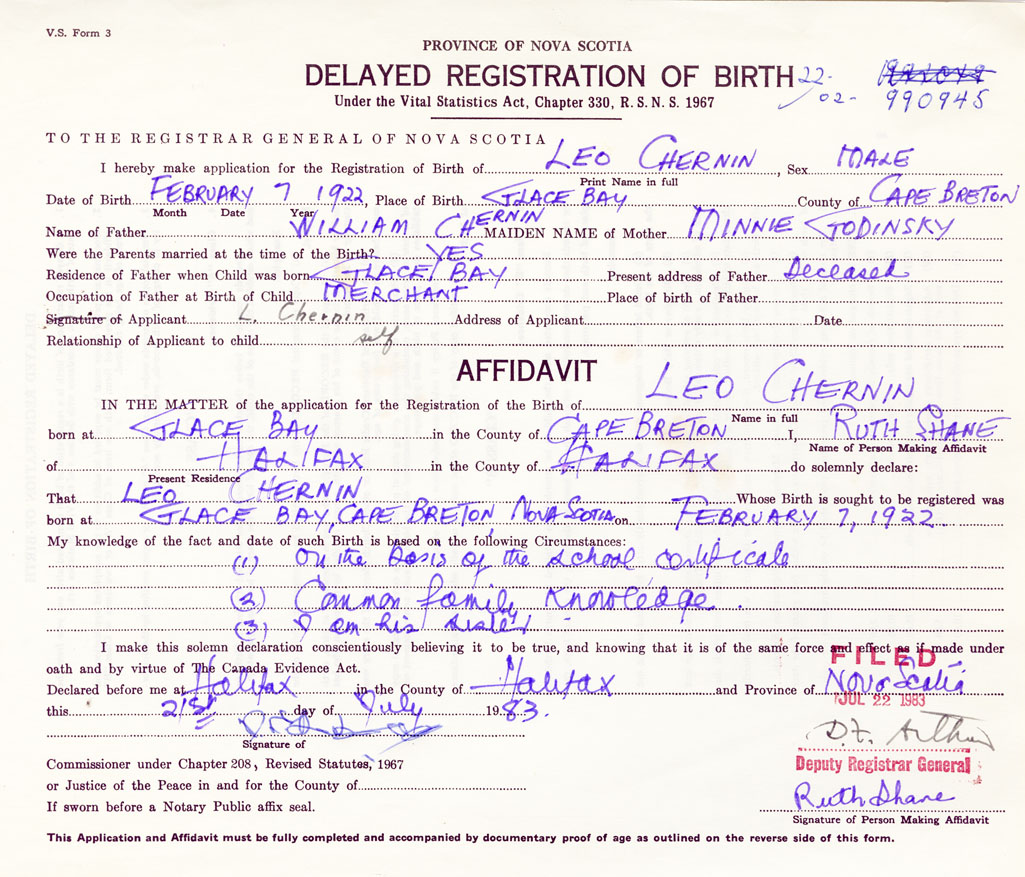 V.S. Form 3
PROVINCE OF NOVA SCOTIA
DELAYED REGISTRATION OF BIRTH 22-
02- 990945
Under the Vital Statistics Act, Chapter 330, R.S.N.S. 1967
TO THE REGISTRAR GENERAL OF NOVA SCOTIA
I hereby make application for the Registration of Birth of LEO CHERNIN, Sex MALE
Print Name in full
Date of Birth FEBRUARY 7 1922, Place of Birth GLACE BAY County of CAPE BRETON
Month Date Year
Name of Father WILLIAM CHERNIN MAIDEN NAME of Mother MINNIE GODINSKY
Were the Parents married at the time of the Birth? YES
Residence of Father when Child was born GLACE BAY Present address of Father Deceased
Occupation of Father at Birth of Child MERCHANT Place of birth of Father
Signature of Applicant L. Chernin Address of Applicant Date
Relationship of Applicant to child self
AFFIDAVIT
IN THE MATTER of the application for the Registration of the Birth of LEO CHERNIN
Name in full
born at GLACE BAY in the County of CAPE BRETON I, RUTH SHANE
Name of Person Making Affidavit
of HALIFAX in the County of HALIFAX do solemnly declare:
Present Residence
That LEO CHERNIN Whose Birth is sought to be registered was
born at GLACE BAY, CAPE BRETON, NOVA SCOTIA on FEBRUARY 7, 1922
My knowledge of the fact and date of such Birth is based on the following Circumstances:
(1) On the basis of the school certificate
(2) Common family knowledge.
(3) I am his sister
I make this solemn declaration conscientiously believing it to be true, and knowing that it is of the same force and effect as if made under
oath and by virtue of The Canada Evidence Act.
FILED
Declared before me at Halifax in the County of Halifax and Province of Nova Scotia
JUL 22 1983
this 21st day of July 1983.
D.F. Arthur
Signature of
Commissioner under Chapter 208, Revised Statutes, 1967
Deputy Registrar General
or Justice of the Peace in and for the County of
Ruth Shane
If sworn before a Notary Public affix seal.
Signature of Person Making Affidavit
This Application and Affidavit must be fully completed and accompanied by documentary proof of age as outlined on the reverse side of this form.